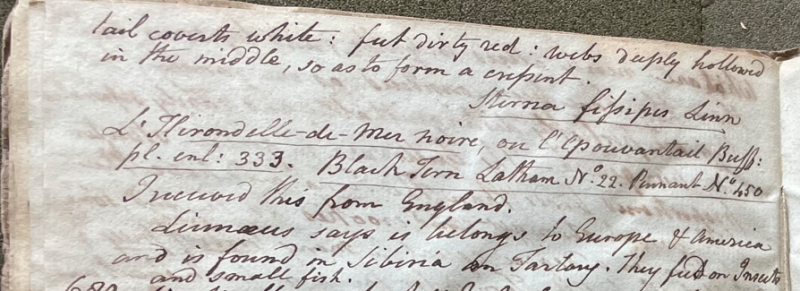 tail coverts white: feet dirty red: webs deeply hollowed
in the middle, so as to form a cresent.
Sterna fissipes Linn
L'Hirondelle-de-Mer noire, ou l'épouvantail Buff:
pl. enl: 333. Black Tern Latham No. 22. Pennant No. 450
I received this from England.
Linnæus says is belongs to Europe & America
and is found in Sibiria on Tartary. They feed on Insects
and small fish.